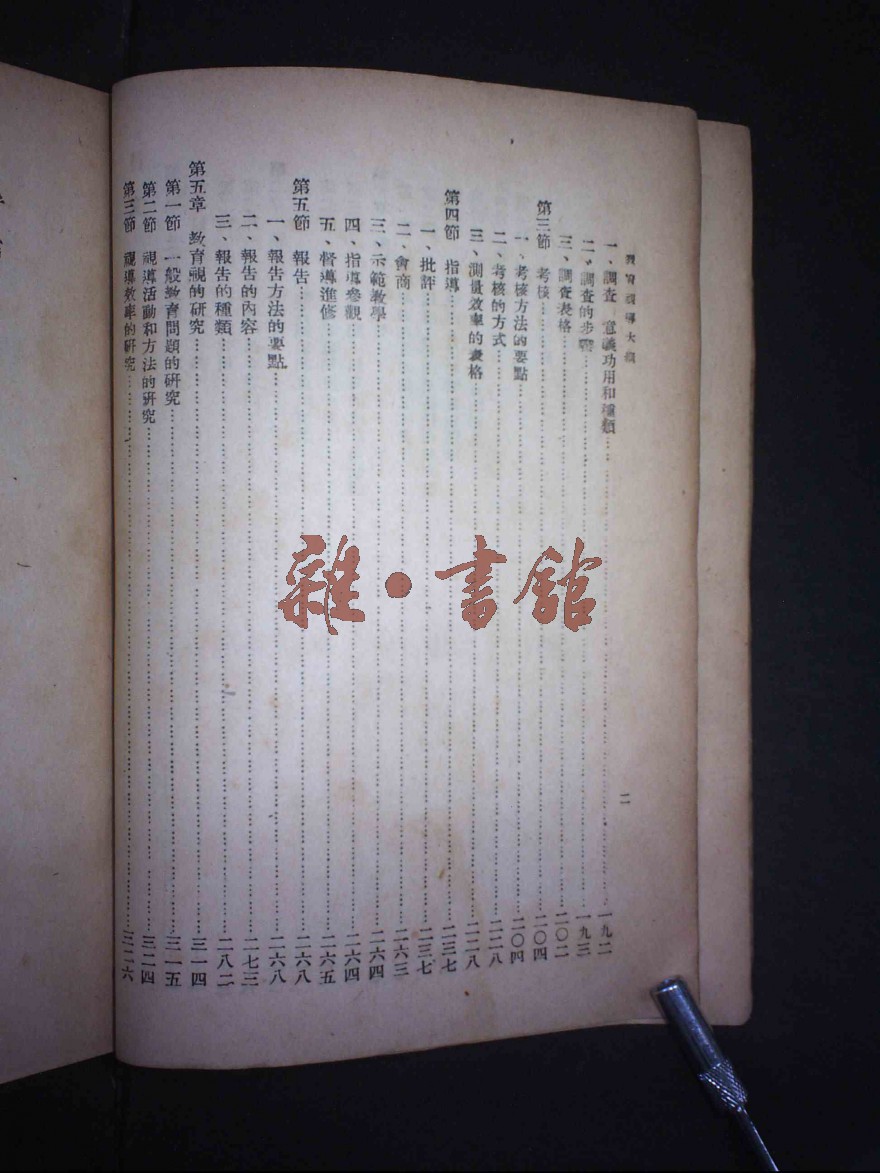 教育視導大綱
一、調查 意義功用和種類……一九二
二、調查的步驟……一九三
三、調查表格……二〇二
第三節 考核……二〇四
一、考核方法的要點……二〇四
二、考核的方式……二一八
三、測量效率的表格……二二八
第四節 指導……二三七
一、批評……二三七
二、會商……二六三
三、示範教學……二六四
四、指導參觀……二六四
五、督導進修……二六五
第五節 報告……二六八
一、報告方法的要點……二六八
二、報告的內容……二七三
三、報告的種類……二八二
第五章 教育視的研究……三一四
第一節 一般教育問題的研究……三一五
第二節 視導活動和方法的研究……三二四
第三節 視導效率的研究……三二六
二
雜·書館